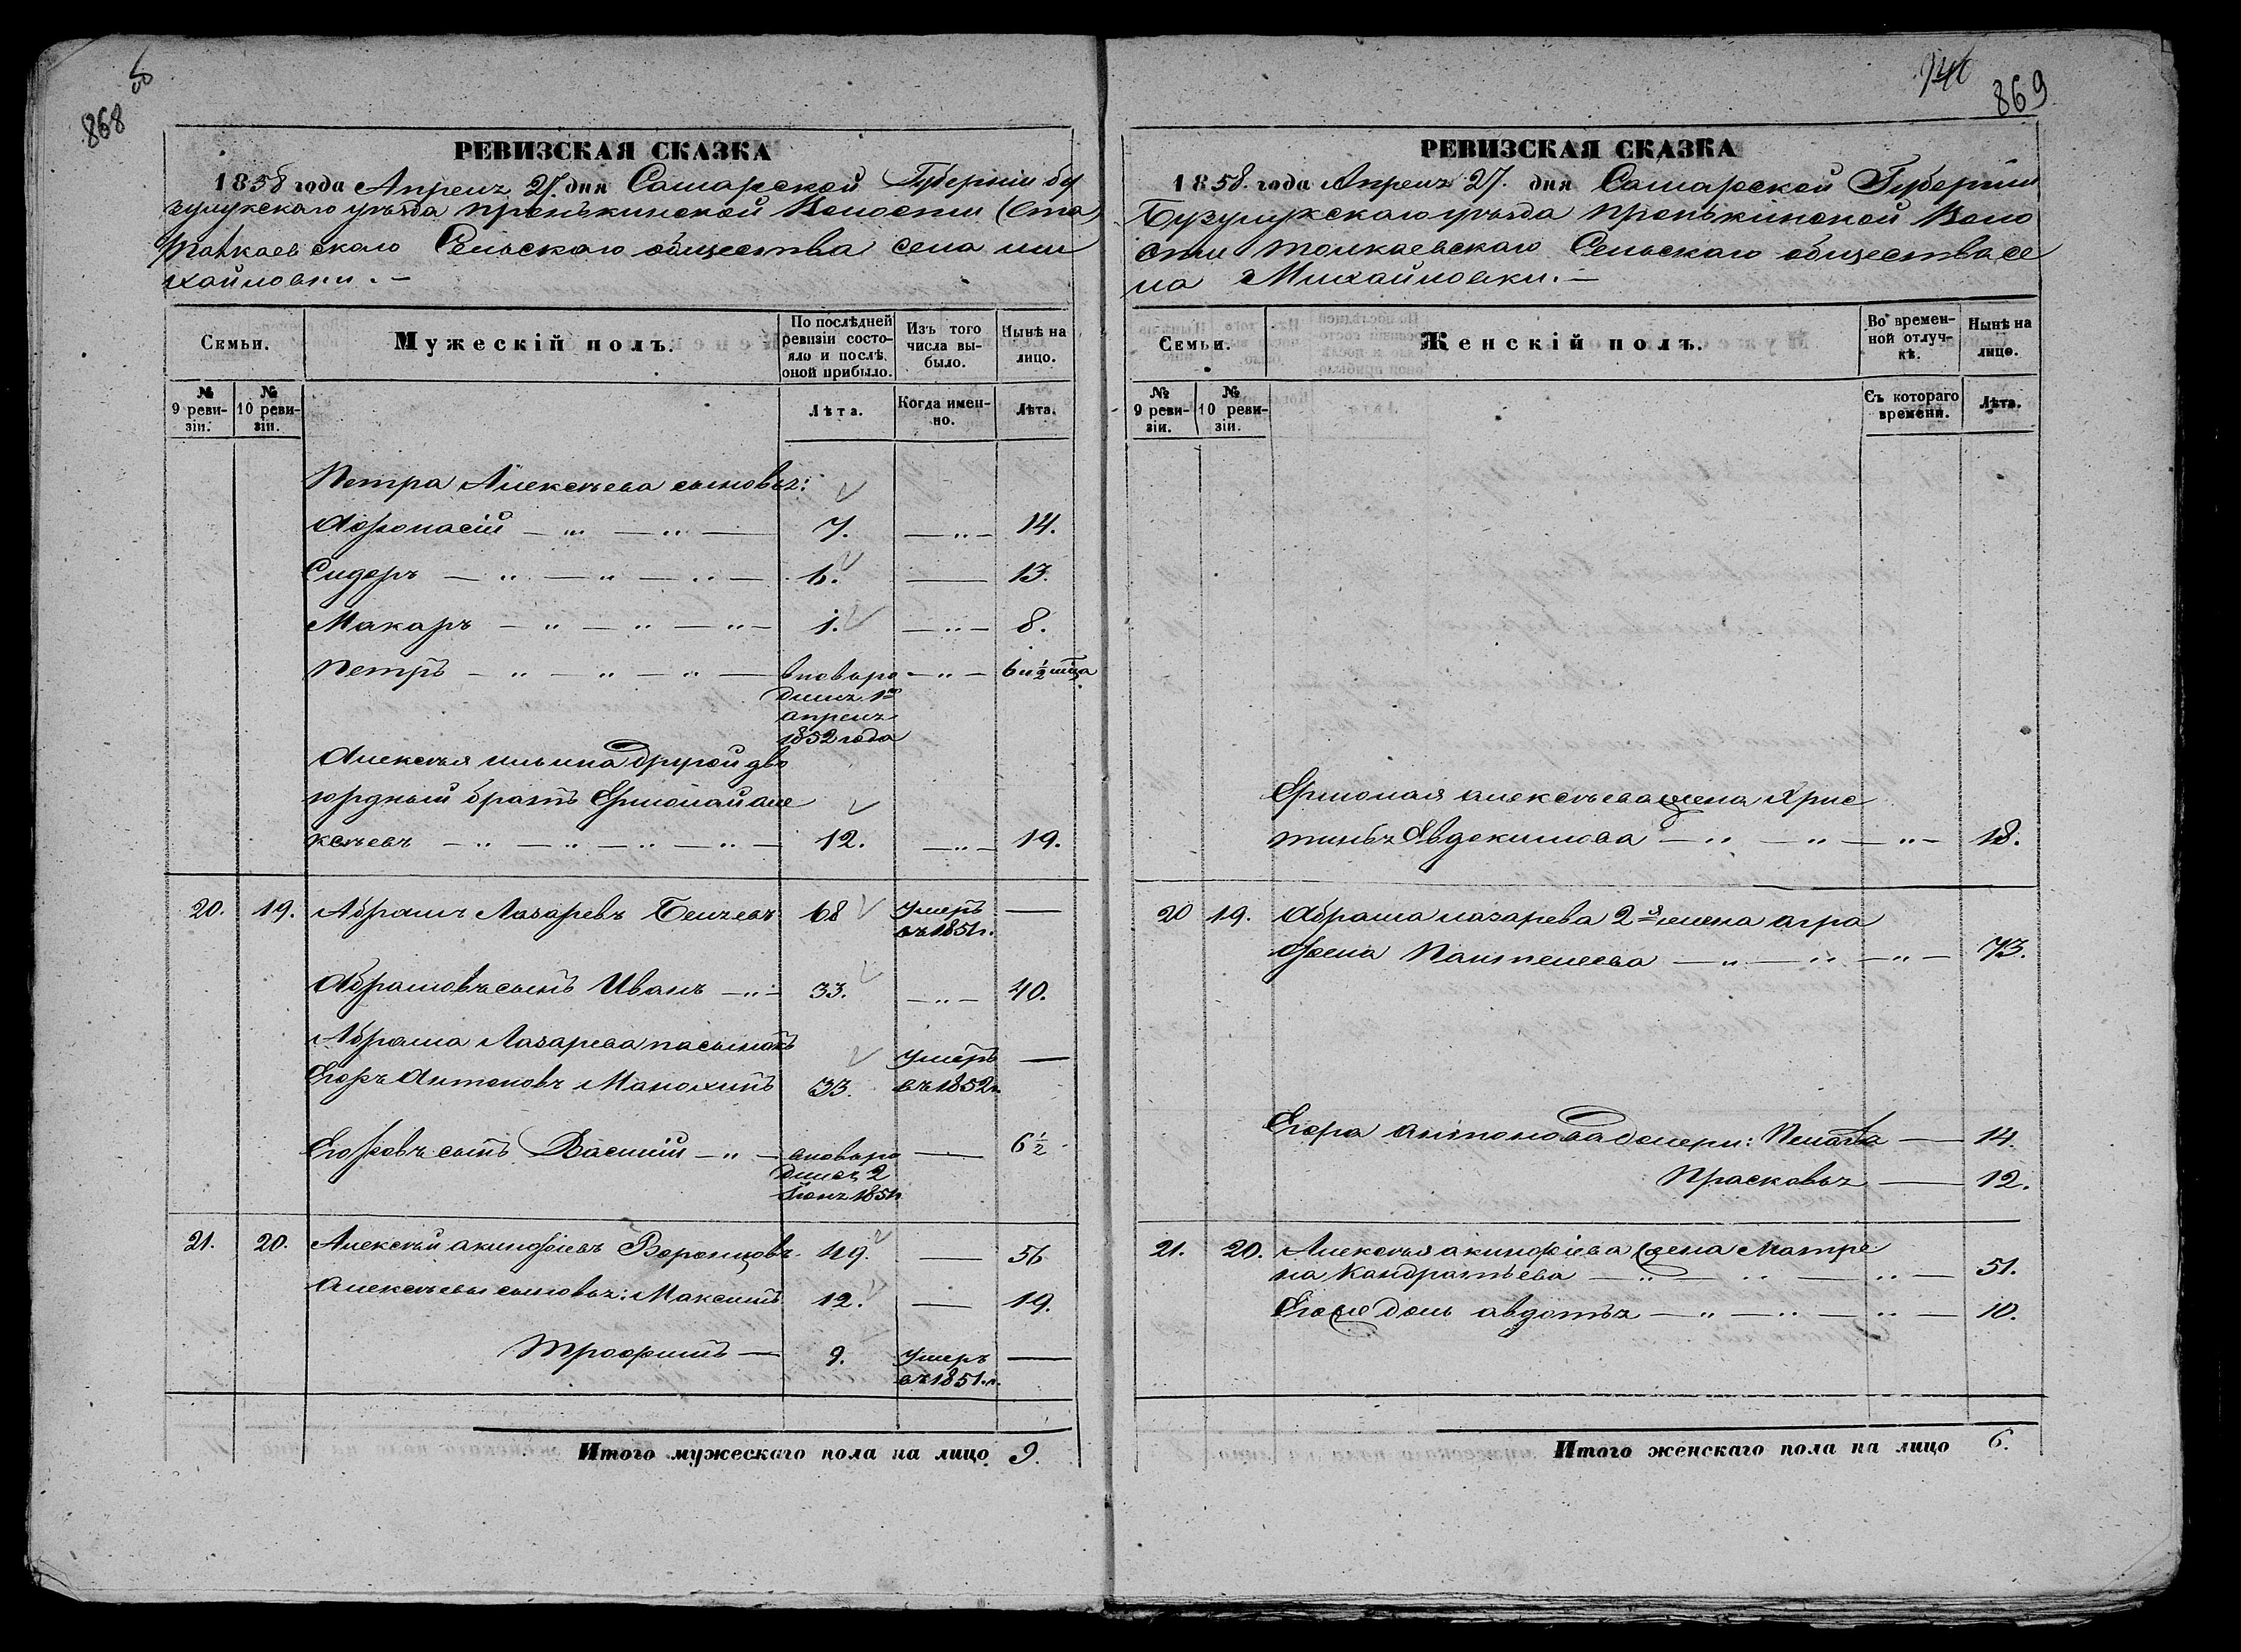 868 об
РЕВИЗСКАЯ СКАЗКА
1858 года Апреля 27. дня Самарской Губернии бу
зулукскаго уезда пронькинской Волости (Ста)
толкаевскаго Сельскаго общества села ми
хайловки. —
Семьи.
Мужескій полъ.
По послѣдней ревизіи состояло и послѣ оной прибыло.
Изъ того числа выбыло.
Нынѣ на лицо.
№ 9 ревизіи.
№ 10 ревизіи.
Лѣта.
Когда именно.
Лѣта.
Петра Алексѣева сыновья:
Афонасій — „ — „ — 7. — „ — 14.
Сидоръ — „ — „ — „ — 6. — 13.
Макаръ — „ — „ — „ — 1. — „ — 8.
Петръ — „ — „ — „ — вновьро — „ — 6 и ½ мца
дился 1го
апреля
1852 года
Алексѣя ильина другой дво
юрдный братъ Ермолай але
ксѣевъ — „ — „ — „ — „ — 12. — „ — 19.
20. 19. Абрамъ Лазаревъ 68 умеръ —
въ 1851г.
Абрамовъ сынъ Иванъ — „ — 33. — „ — 40.
Абрама Лазарева пасынокъ умеръ —
Егоръ Антоновъ Манохинъ 33. въ 1852г.
Егоровъ сынъ Василий — „ — вновьро — 6½
дился 2
1851г
21. 20. Алексѣй акинфіевъ Воронцовъ. 49. — 56
Алексѣевы сыновья: Максимъ 12. — 19.
Трофимъ — 9. умеръ —
въ 1851.г.
Итого мужескаго пола на лицо 9.
869
РЕВИЗСКАЯ СКАЗКА
1858. года Апреля 27. дня Самарской Губернии
Бузулукскаго уѣзда пронькинской Воло
сти толкаевскаго Сельскаго общества се
ла Михайловки. —
Семьи.
Женскій полъ.
Во временной отлучкѣ.
Нынѣ на лицо.
№ 9 ревизіи.
№ 10 ревизіи.
Съ котораго времени.
Лѣта.
Ермолая алексѣева жена Хрис
тинья Авдокимова — „ — „ — „ — 18.
20 19. Абрама лазарева 2я жена агра
фена Пантелеева — „ — „ — „ — 73.
Егора антонова дочери: Пелагея — 14.
Прасковья — 12.
21. 20. Алексѣя акинфіева жена Матре
на Кандратьева — „ — „ — „ — 51.
Егоже дочь авдотья — „ — „ — „ — 10.
Итого женскаго пола на лицо 6.